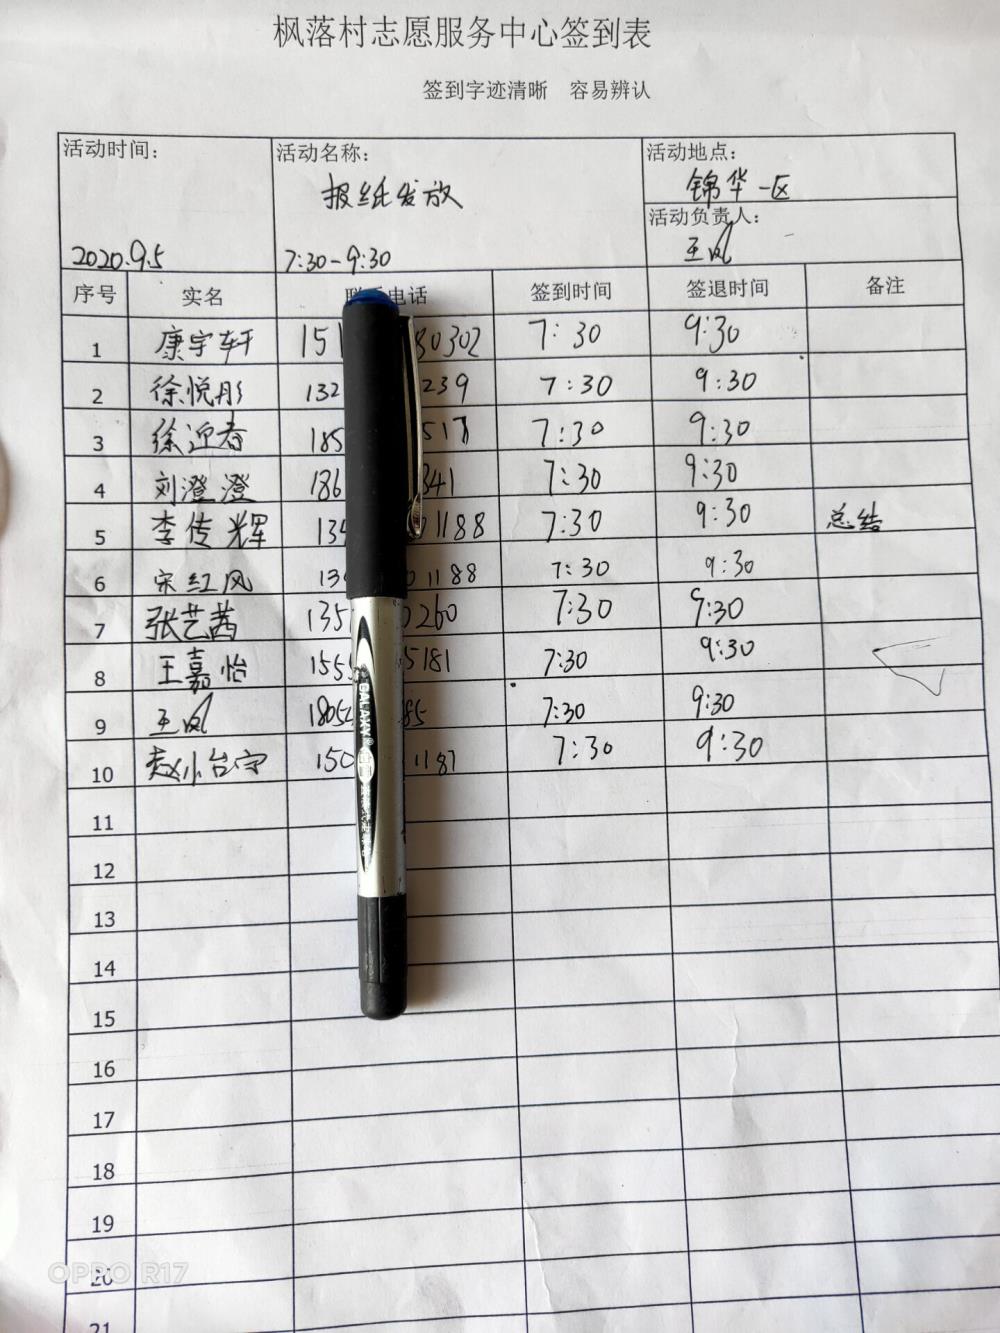 枫落村志愿服务中心签到表
签到字迹清晰 容易辨认
活动时间： 活动名称： 活动地点：
报纸发放 锦华一区
活动负责人：
2020.9.5 7:30-9:30 王凤
序号 实名 电话 签到时间 签退时间 备注
1 康宇轩 151 80302 7:30 9:30
2 徐悦彤 132 239 7:30 9:30
3 徐迎春 185 517 7:30 9:30
4 刘澄澄 186 341 7:30 9:30
5 李传辉 134 1188 7:30 9:30 总结
6 宋红风 13 01188 7:30 9:30
7 张艺茜 135 260 7:30 9:30
8 王嘉怡 155 5181 7:30 9:30
9 王凤 1805 85 7:30 9:30
10 赵小 150 1187 7:30 9:30
11
12
13
14
15
16
17
18
19
20
21
GALAXY
OPPO R17